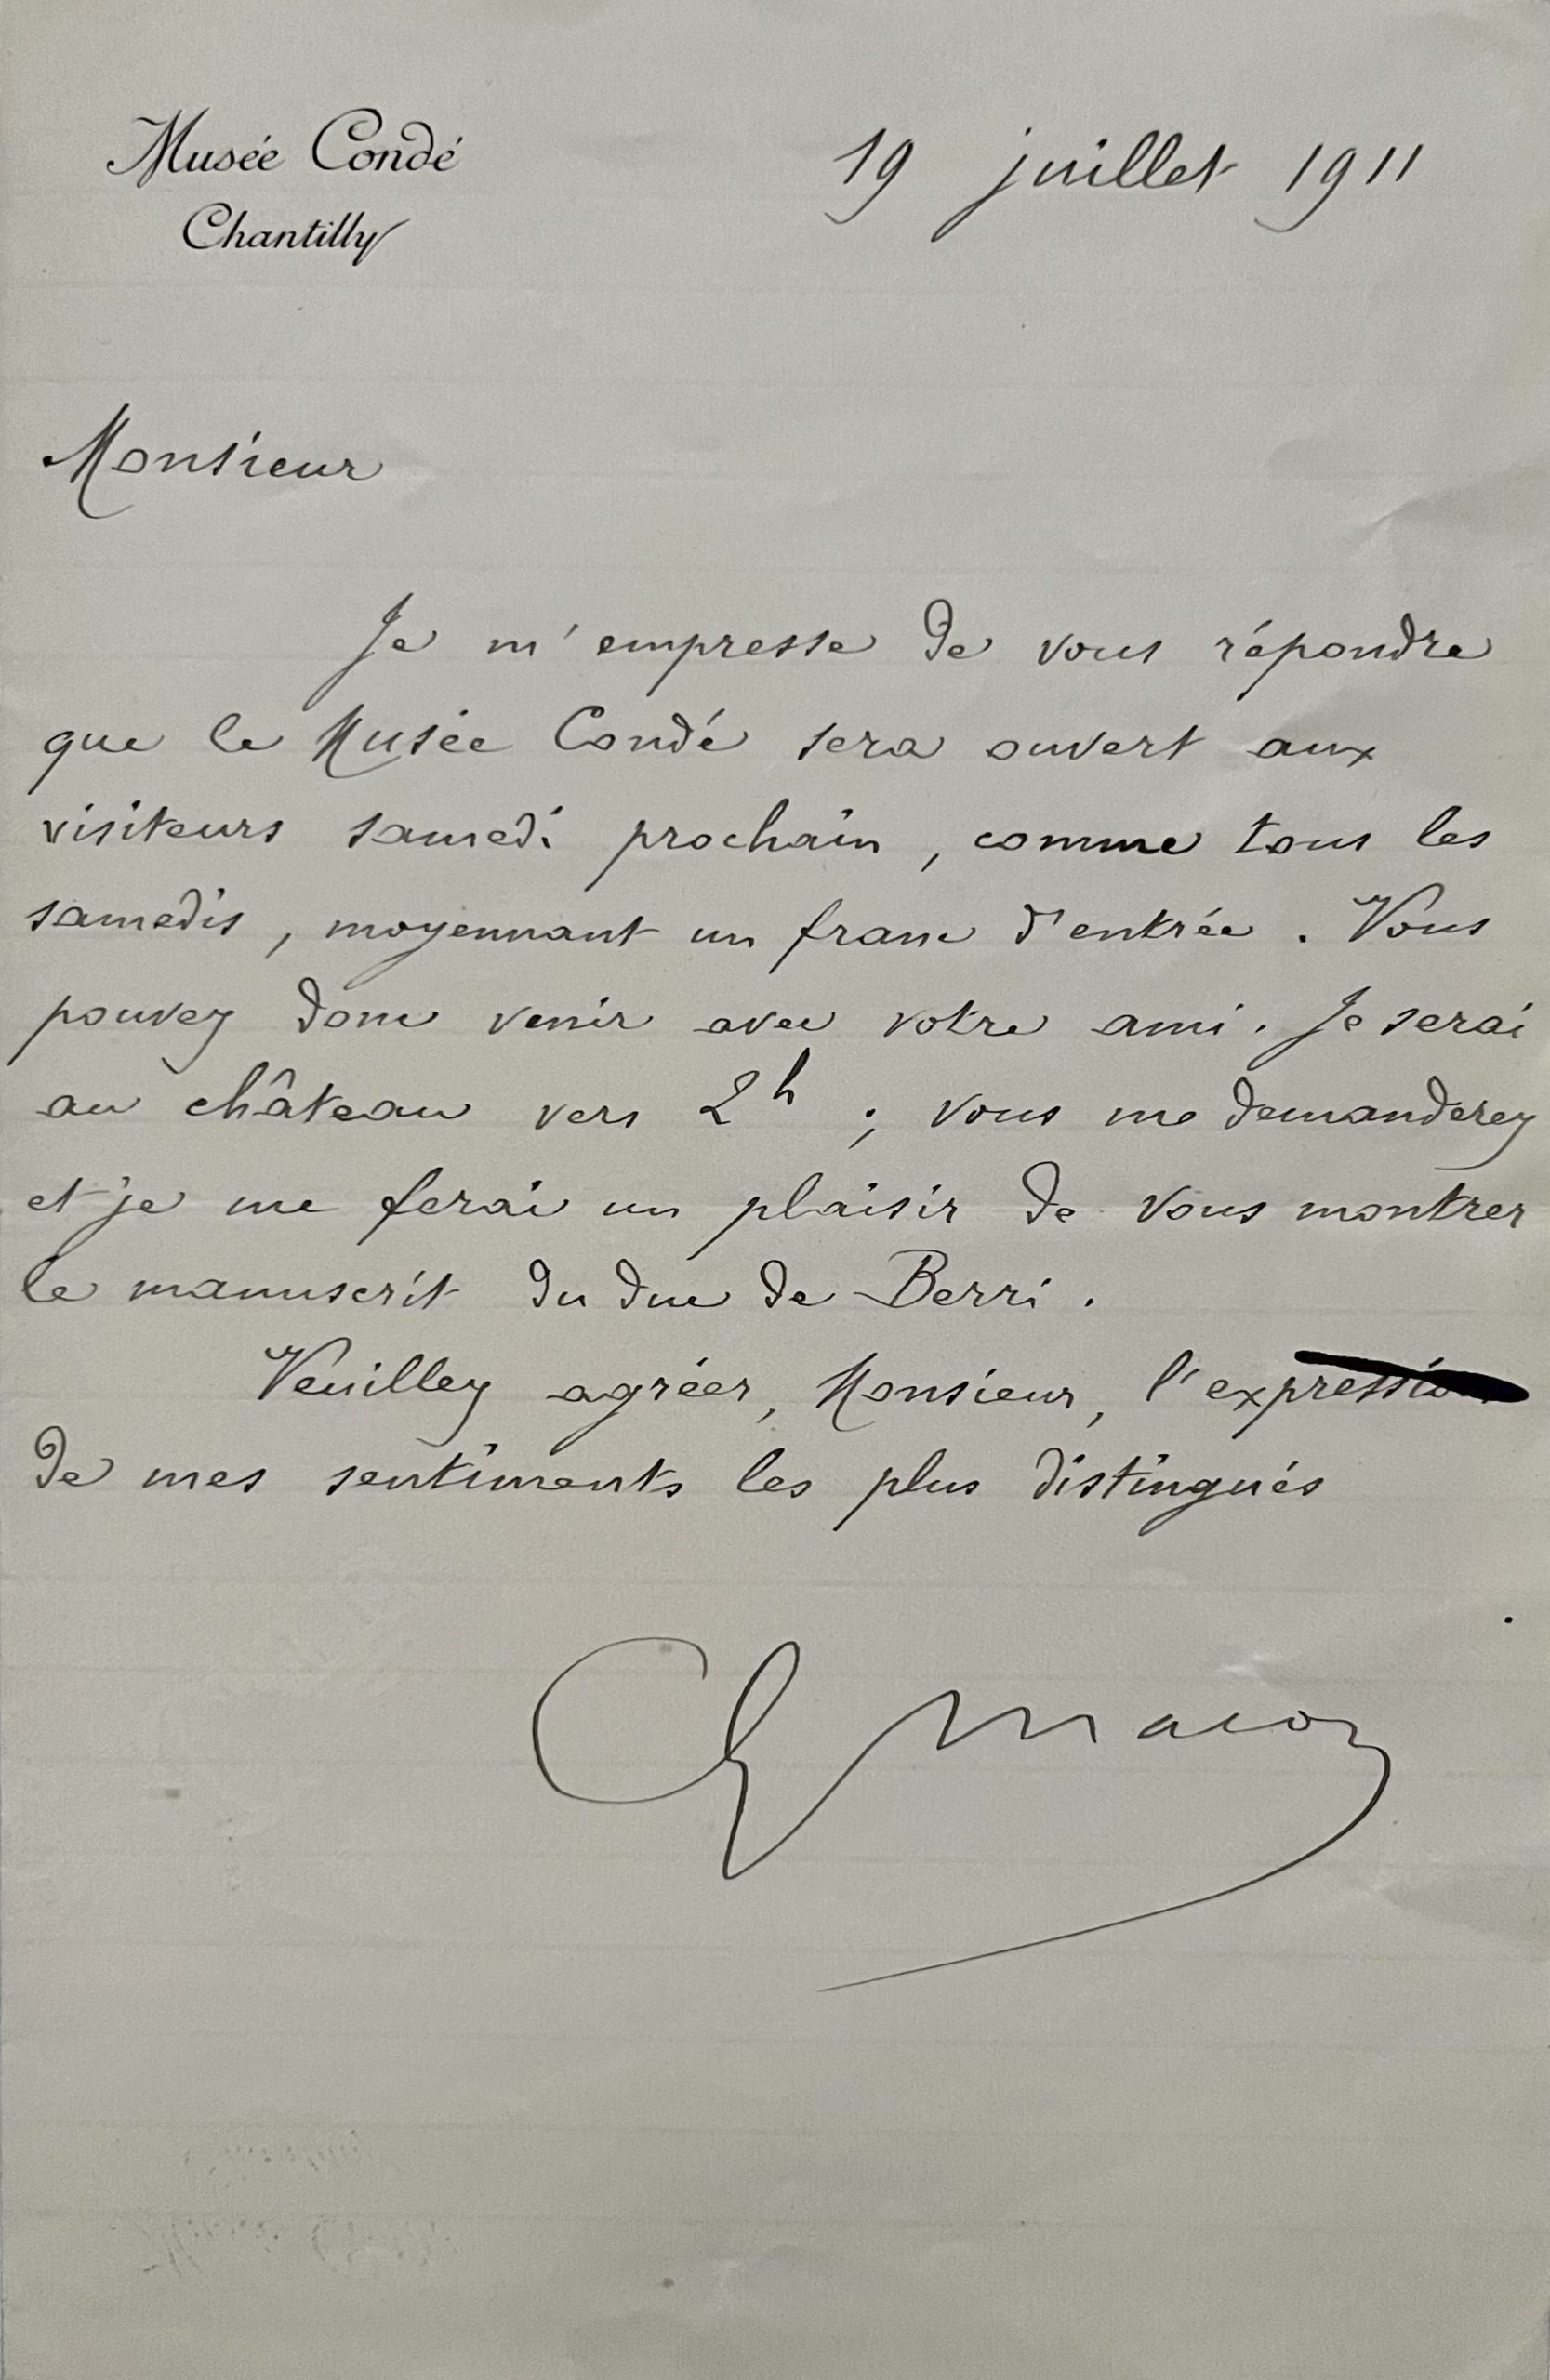 Musée Condé
Chantilly
19 juillet 1911
Monsieur
Je m'empresse de vous répondre
que le Musée Condé sera ouvert aux
visiteurs samedi prochain, comme tous les
samedis, moyennant un franc d'entrée. Vous
pouvez donc venir avec votre ami. Je serai
au château vers 2h ; vous me demanderez
et je me ferai un plaisir de vous montrer
le manuscrit du duc de Berri.
Veuillez agréer, Monsieur, l'expression
de mes sentiments les plus distingués
G Macon